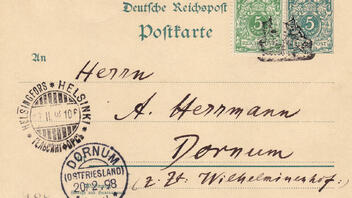 Deutsche Reichspost
Postkarte
5 5
An
Herrn
A. Herrmann
Dornum
(z. Zt. Wilhelminenhof:)
HELSINGFORS * HELSINKI
ГЕЛЬСИНГФОРСЪ
DORNUM
(OSTFRIESLAND)
20/2 98